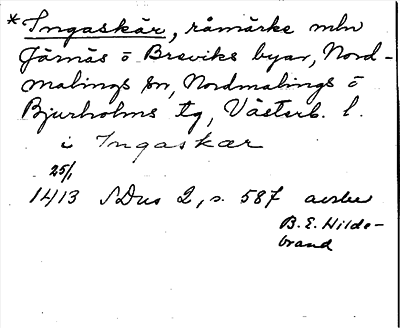 * Ingaskär, råmärke mln
Järnäs o Breviks byar, Nord-
malings sn, Nordmalings o
Bjurholms tg, Västerb. l.
i Ingaskær
25/1
1413 SDns 2, s. 587 avskr
B. E. Hilde-
brand